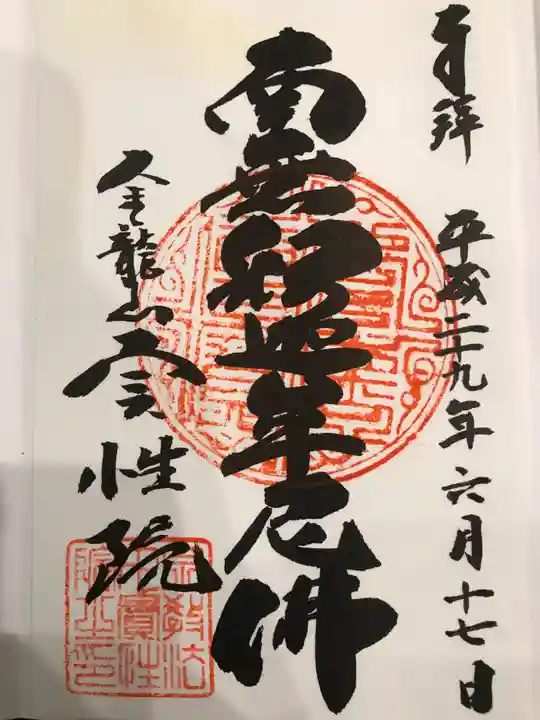 奉拝 平成二十九年六月十七日
南無釈迦牟尼佛
金龍山 実性院